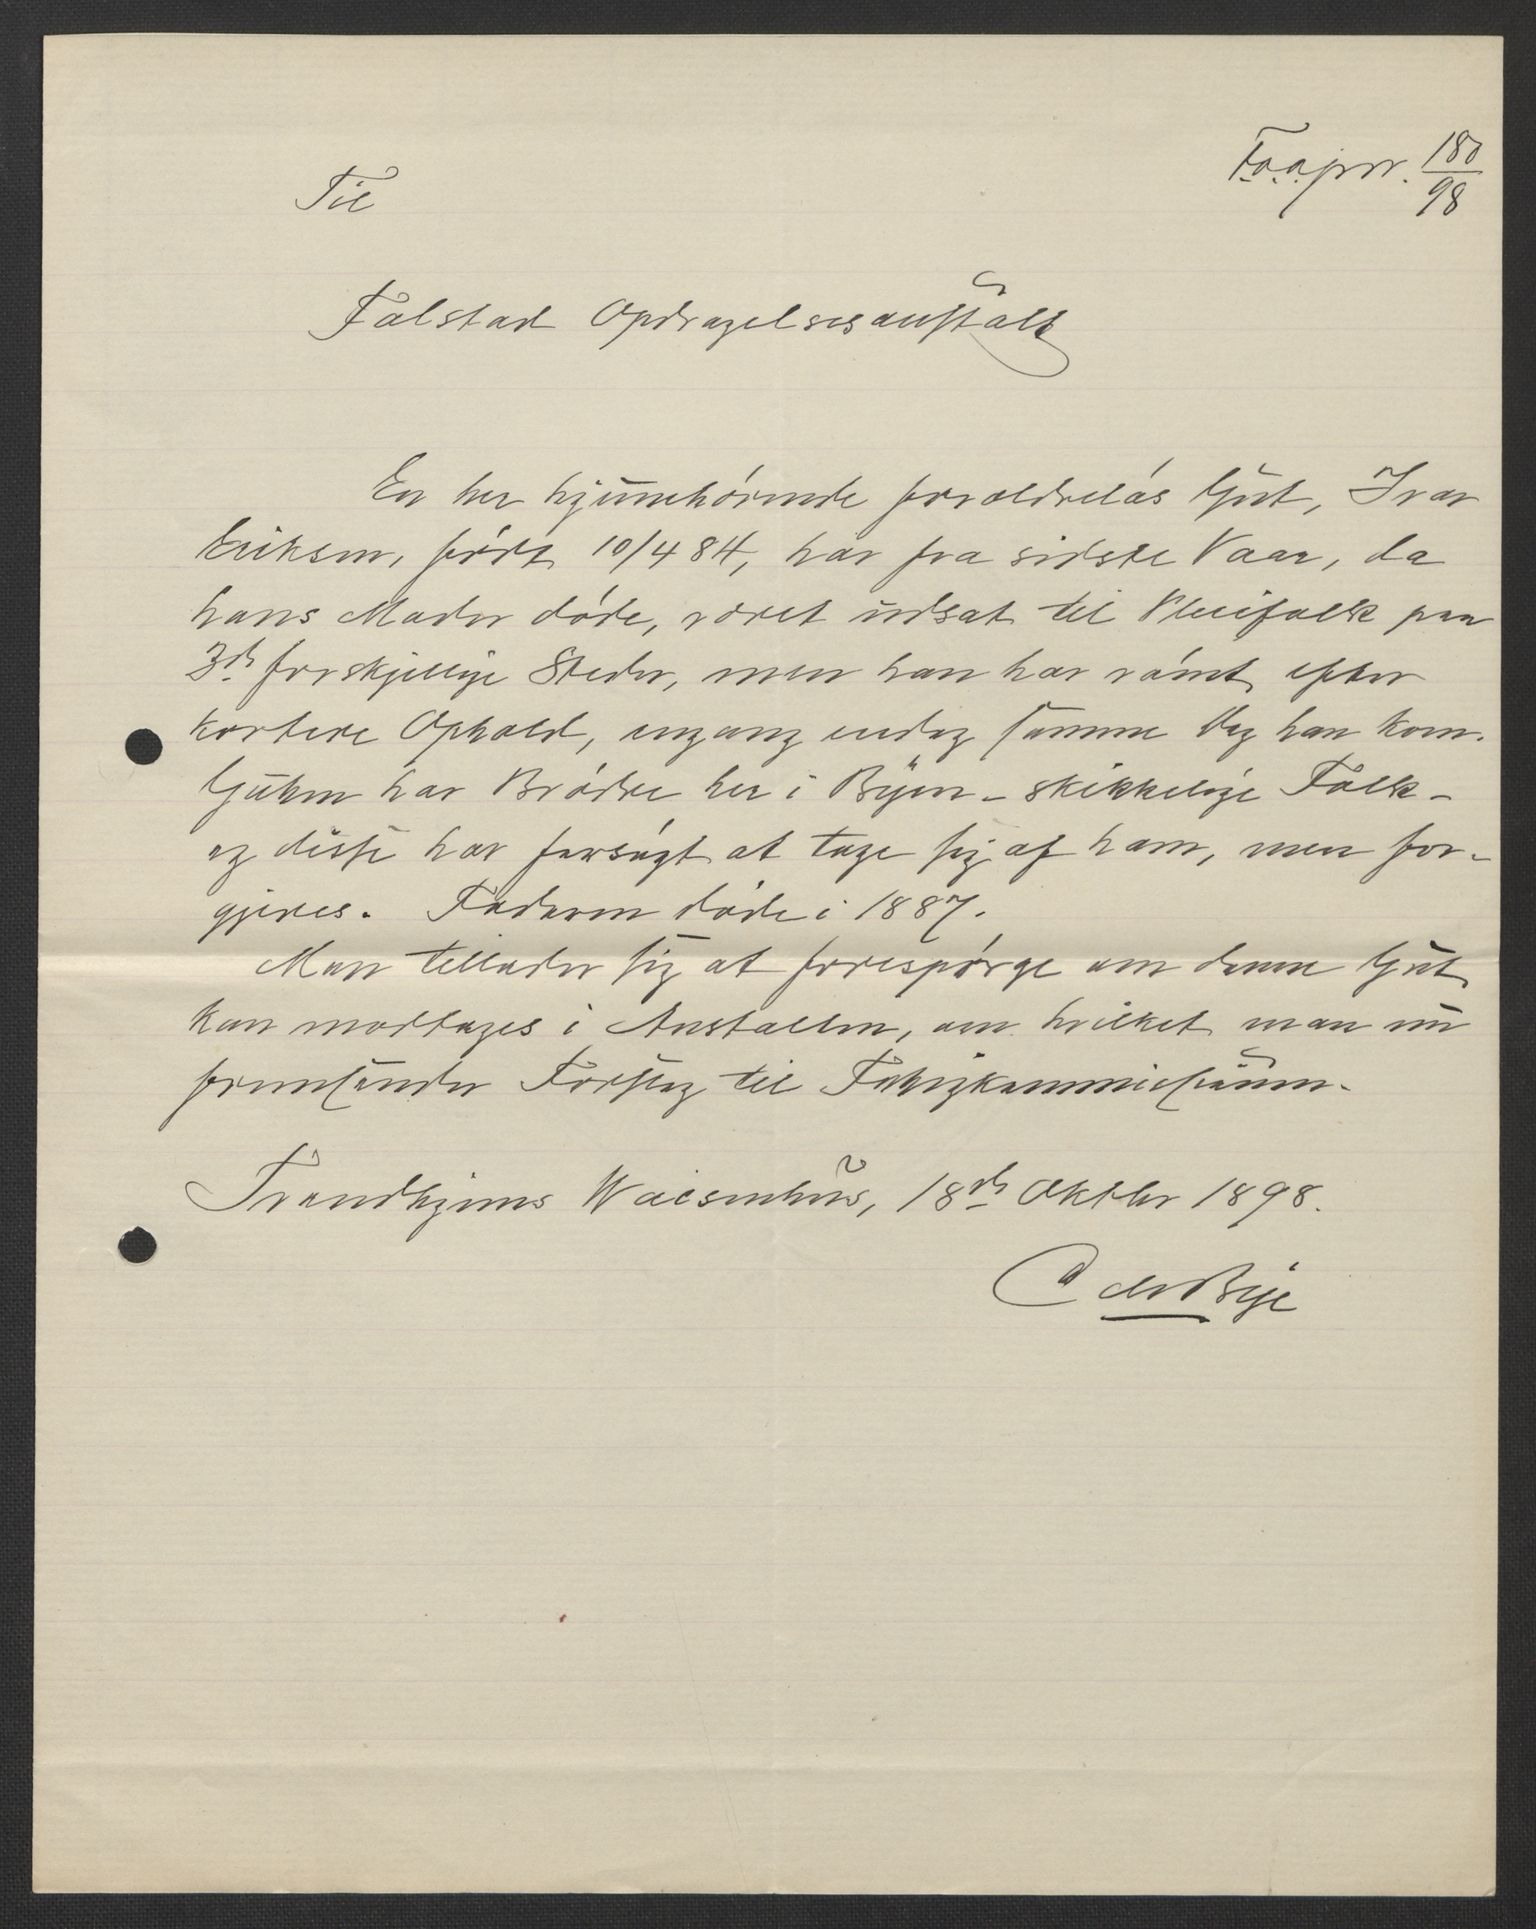 F.o.a.jnr. 180/98
Til
Falstad Opdragelsesanstalt
En her hjemmehörende forældrelös Gut, Ivar
Eriksen, född 10/4 84, har fra sidste Vaar, da
hans Moder döde, været udsat til Pleiefolk paa
3de forskjellige Steder, men han har römt efter
kortere Ophold, engang endog samme Dag han kom.
Gutten har Brödre her i Byen - skikkelige Folk -
og disse har forsögt at tage sig af ham, men for-
gjeves. Faderen döde i 1887.
Man tillader sig at forespörge om denne Gut
kan modtages i Anstalten, om hvilket man nu
fremsender Forslag til Fattigkommissionen.
Trondhjems Waisenhus, 18de Oktbr 1898.
C Bye